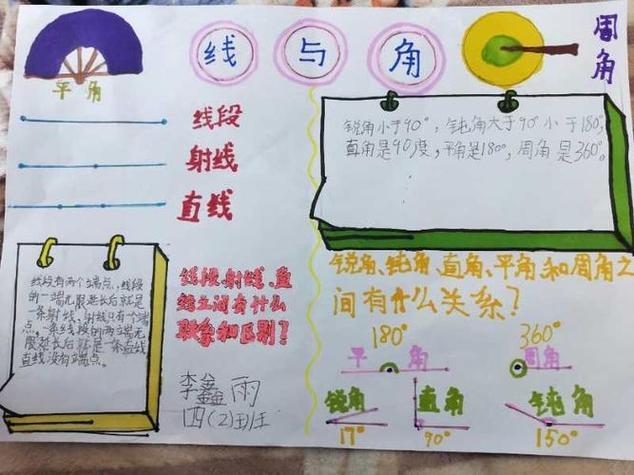 线与角
周角
平角
线段
射线
直线
锐角小于90°，钝角大于90°小于180°，
直角是90度，平角是180°，周角是360°。
线段有两个端点，线段
的一端无限延长后就是
一条射线，射线只有个端
点。一条线段的两端无
限延长后就是一条直线
直线没有端点。
线段、射线、直
线之间有什么
联系和区别？
李鑫雨
四（2）班
锐角、钝角、直角、平角和周角之
间有什么关系？
180°
平角
360°
周角
锐角
17°
直角
90°
钝角
150°